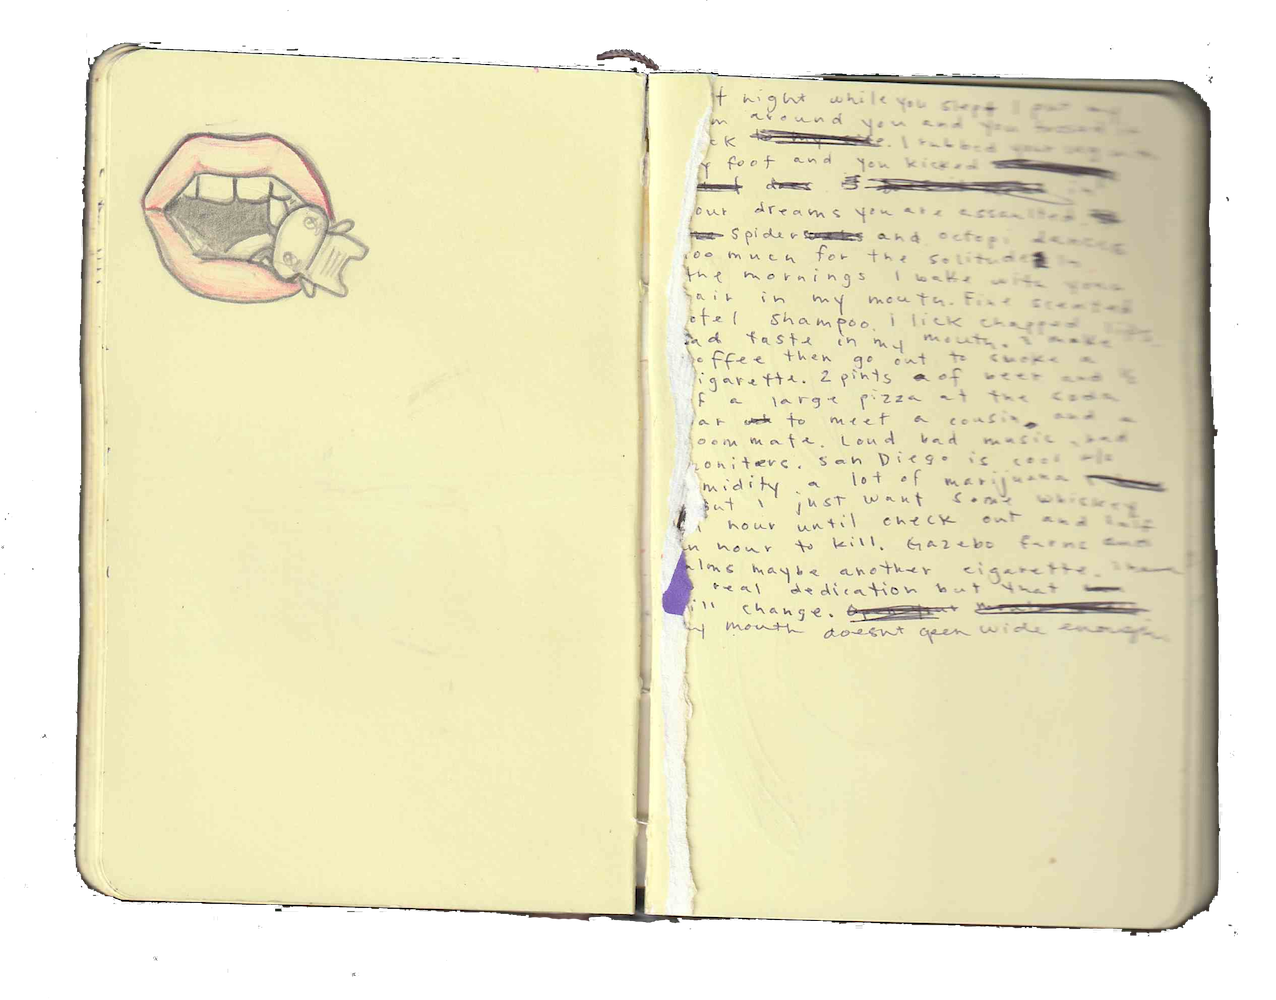 t night while you slept I put my
m around you and you tossed
ck . I rubbed your leg with
y foot and you kicked
in
our dreams you are assaulted
spiders and octopi dances
oo much for the solitude In
the mornings I wake with your
air in my mouth. Fine scented
otel shampoo. I lick chapped lips
ad taste in my mouth. I make
offee then go out to smoke a
igarette. 2 pints of beer and ½
f a large pizza at the soda
ar to meet a cousin and a
oom mate. Loud bad music, bad
oniters. San Diego is cool w/o
midity a lot of marijuana
but I just want some whiskey
hour until check out and half
n hour to kill. Gazebo ferns and
alms maybe another cigarette. I have
real dedication but that
ill change.
y mouth doesnt open wide enough